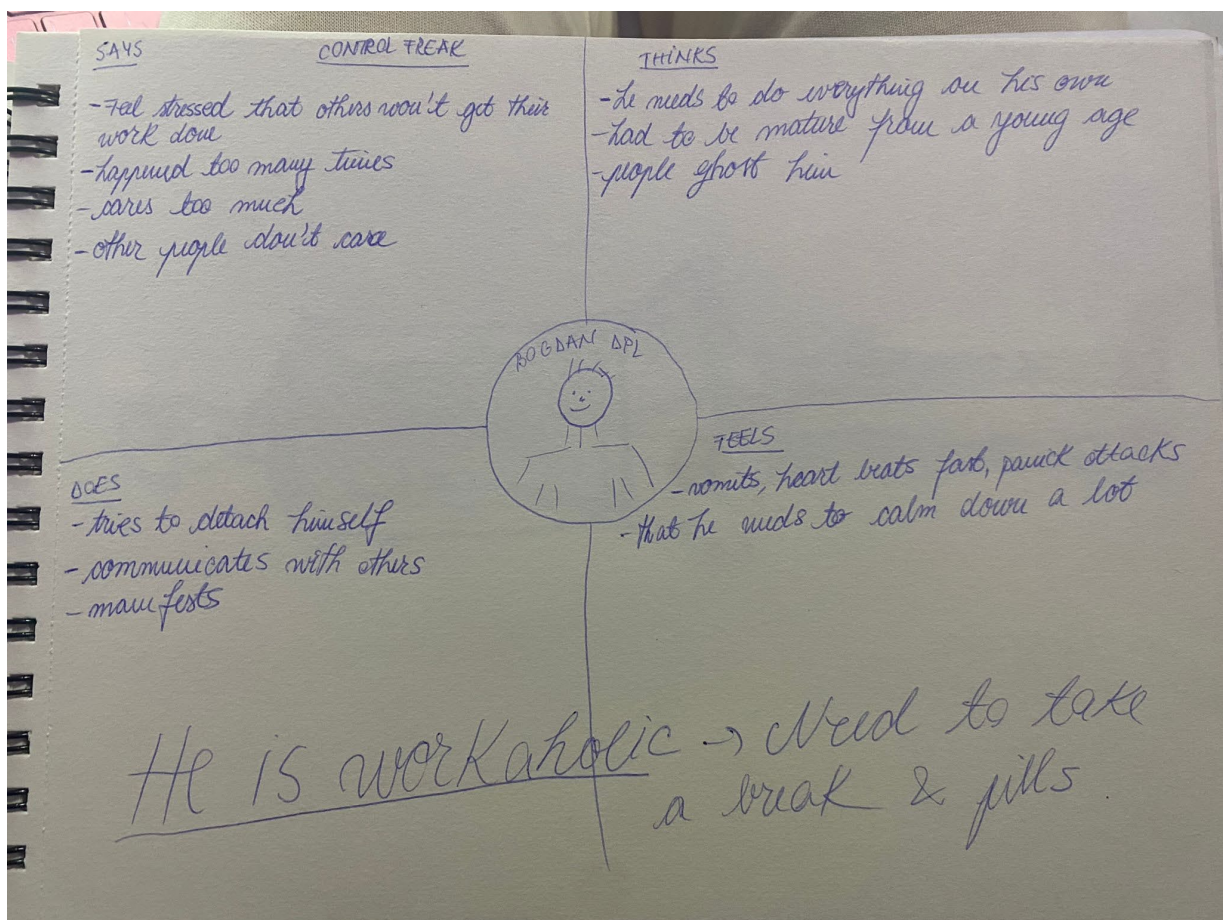 SAYS
CONTROL FREAK
-Feel stressed that others won't get their
work done
-happened too many times
-cares too much
-other people don't care
THINKS
-he needs to do everything on his own
-had to be mature from a young age
-people ghost him
BOGDAN DPL
DOES
-tries to detach himself
-communicates with others
-manifests
FEELS
-vomits, heart beats fast, panick attacks
-that he needs to calm down a lot
He is workaholic → Need to take
a break & pills